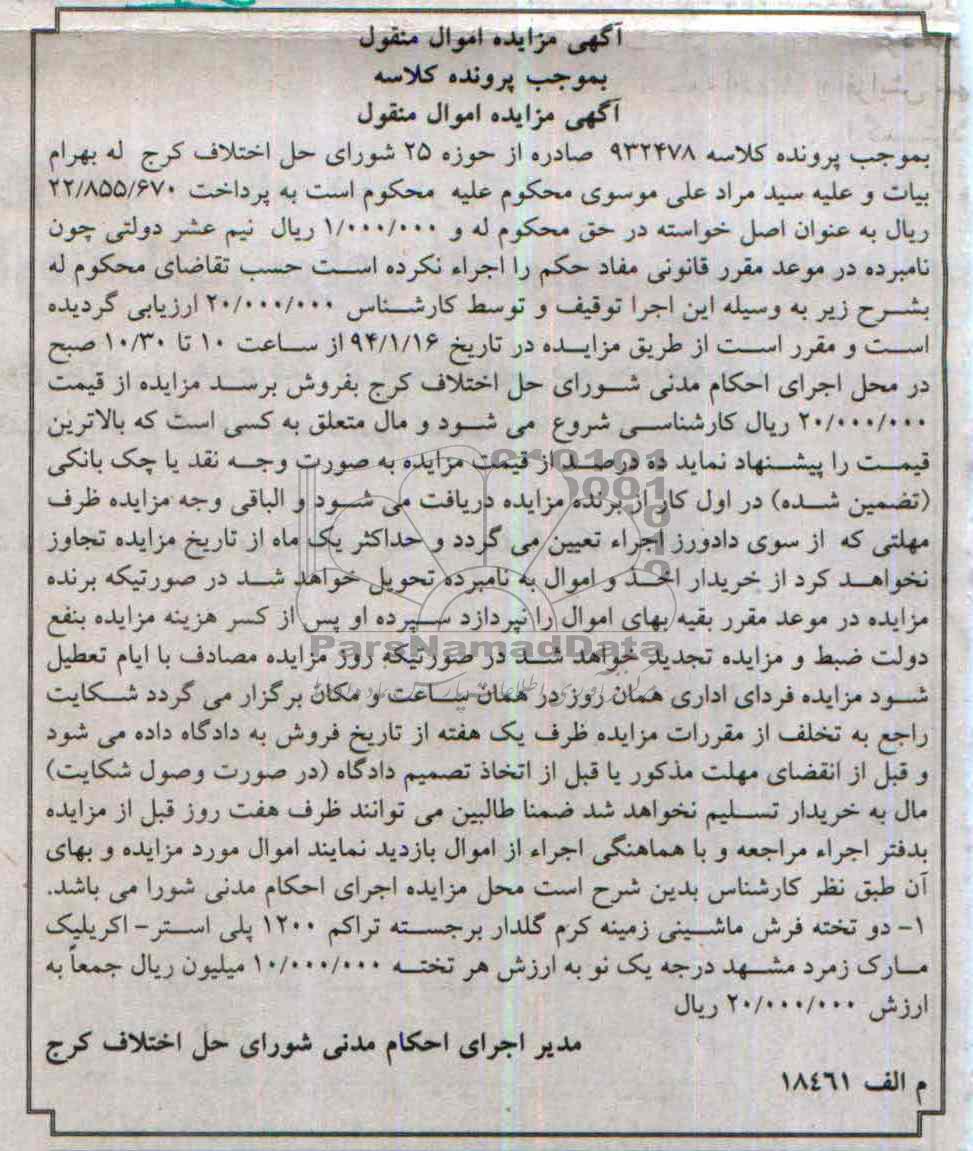 آگهی مزایده اموال منقول
بموجب پرونده کلاسه
آگهی مزایده اموال منقول
بموجب پرونده کلاسه ۹۳۲۴۷۸ صادره از حوزه ۲۵ شورای حل اختلاف کرج له بهرام
بیات و علیه سید مراد علی موسوی محکوم علیه محکوم است به پرداخت ۲۲/۸۵۵/۶۷۰
ریال به عنوان اصل خواسته در حق محکوم له و ۱/۰۰۰/۰۰۰ ریال نیم عشر دولتی چون
نامبرده در موعد مقرر قانونی مفاد حکم را اجراء نکرده است حسب تقاضای محکوم له
بشرح زیر به وسیله این اجرا توقیف و توسط کارشناس ۲۰/۰۰۰/۰۰۰ ارزیابی گردیده
است و مقرر است از طریق مزایده در تاریخ ۹۴/۱/۱۶ از ساعت ۱۰ تا ۱۰/۳۰ صبح
در محل اجرای احکام مدنی شورای حل اختلاف کرج بفروش برسد مزایده از قیمت
۲۰/۰۰۰/۰۰۰ ریال کارشناسی شروع می شود و مال متعلق به کسی است که بالاترین
قیمت را پیشنهاد نماید ده درصد از قیمت مزایده به صورت وجه نقد یا چک بانکی
(تضمین شده) در اول کار از برنده مزایده دریافت می شود و الباقی وجه مزایده ظرف
مهلتی که از سوی دادورز اجراء تعیین می گردد و حداکثر یک ماه از تاریخ مزایده تجاوز
نخواهد کرد از خریدار اخذ و اموال به نامبرده تحویل خواهد شد در صورتیکه برنده
مزایده در موعد مقرر بقیه بهای اموال را نپردازد سپرده او پس از کسر هزینه مزایده بنفع
ParsNamadData
دولت ضبط و مزایده تجدید خواهد شد در صورتیکه روز مزایده مصادف با ایام تعطیل
شود مزایده فردای اداری همان روز در همان ساعت و مکان برگزار می گردد شکایت
راجع به تخلف از مقررات مزایده ظرف یک هفته از تاریخ فروش به دادگاه داده می شود
و قبل از انقضای مهلت مذکور یا قبل از اتخاذ تصمیم دادگاه (در صورت وصول شکایت)
مال به خریدار تسلیم نخواهد شد ضمنا طالبین می توانند ظرف هفت روز قبل از مزایده
بدفتر اجراء مراجعه و با هماهنگی اجراء از اموال بازدید نمایند اموال مورد مزایده و بهای
آن طبق نظر کارشناس بدین شرح است محل مزایده اجرای احکام مدنی شورا می باشد.
۱- دو تخته فرش ماشینی زمینه کرم گلدار برجسته تراکم ۱۲۰۰ پلی استر- اکریلیک
مارک زمرد مشهد درجه یک نو به ارزش هر تخته ۱۰/۰۰۰/۰۰۰ میلیون ریال جمعاً به
ارزش ۲۰/۰۰۰/۰۰۰ ریال
مدیر اجرای احکام مدنی شورای حل اختلاف کرج
م الف ۱۸٤٦۱